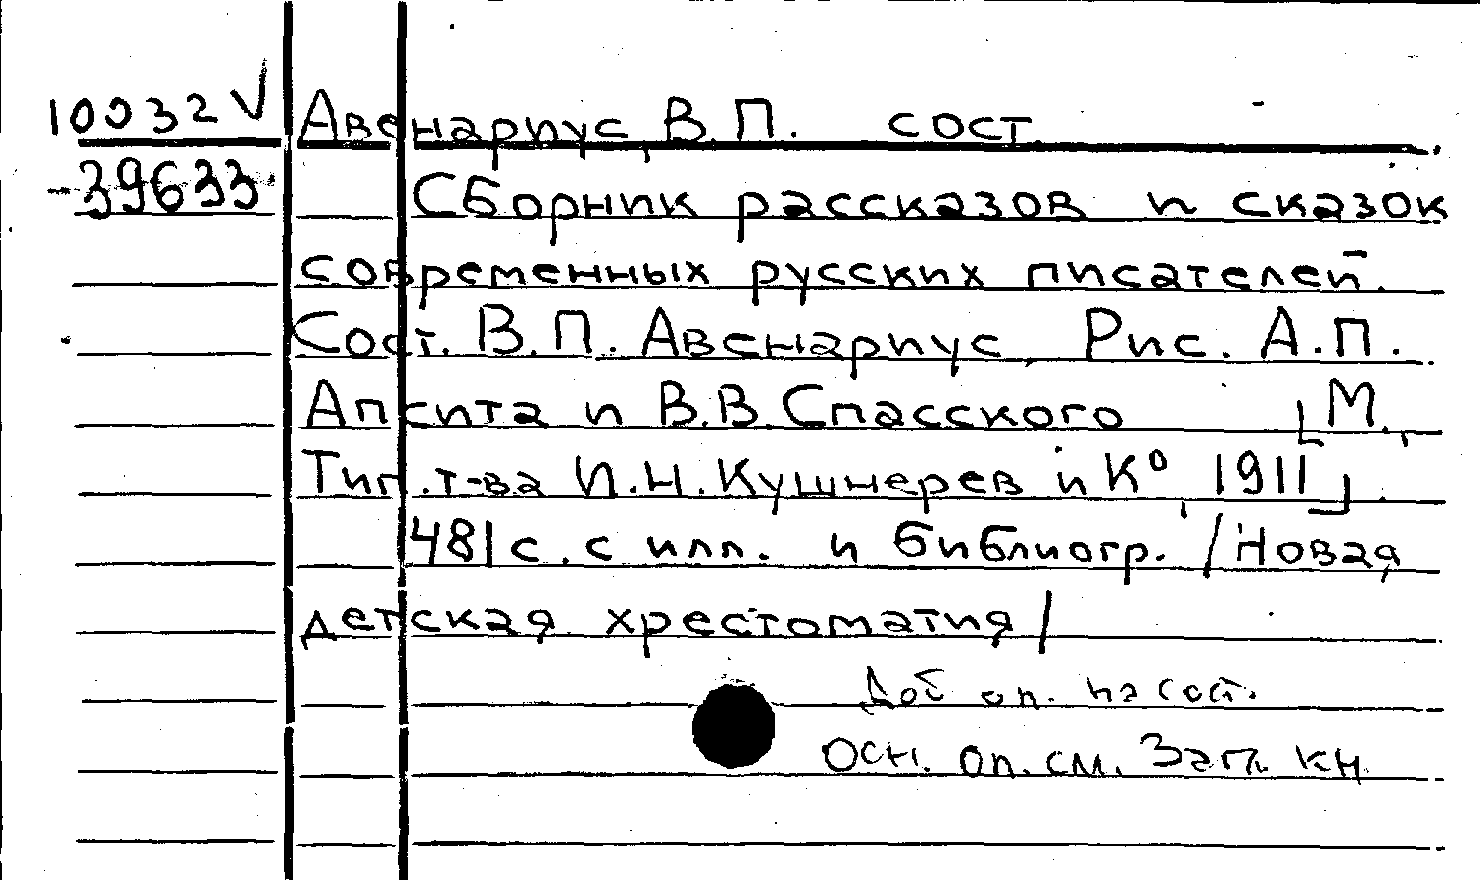 10032 V Авенариус, В.П. сост
39633 Сборник рассказов и сказок
современных русских писателей.
Сост. В.П. Авенариус, Рис. А.П.
Апсита и В.В. Спасского [М.,
Тип. т-ва И.Н. Кушнерев и К⁰, 1911].
481 с. с илл. и библиогр. /Новая
детская хрестоматия/
Доб оп. на сост.
Осн. оп. см. Загл. кн.